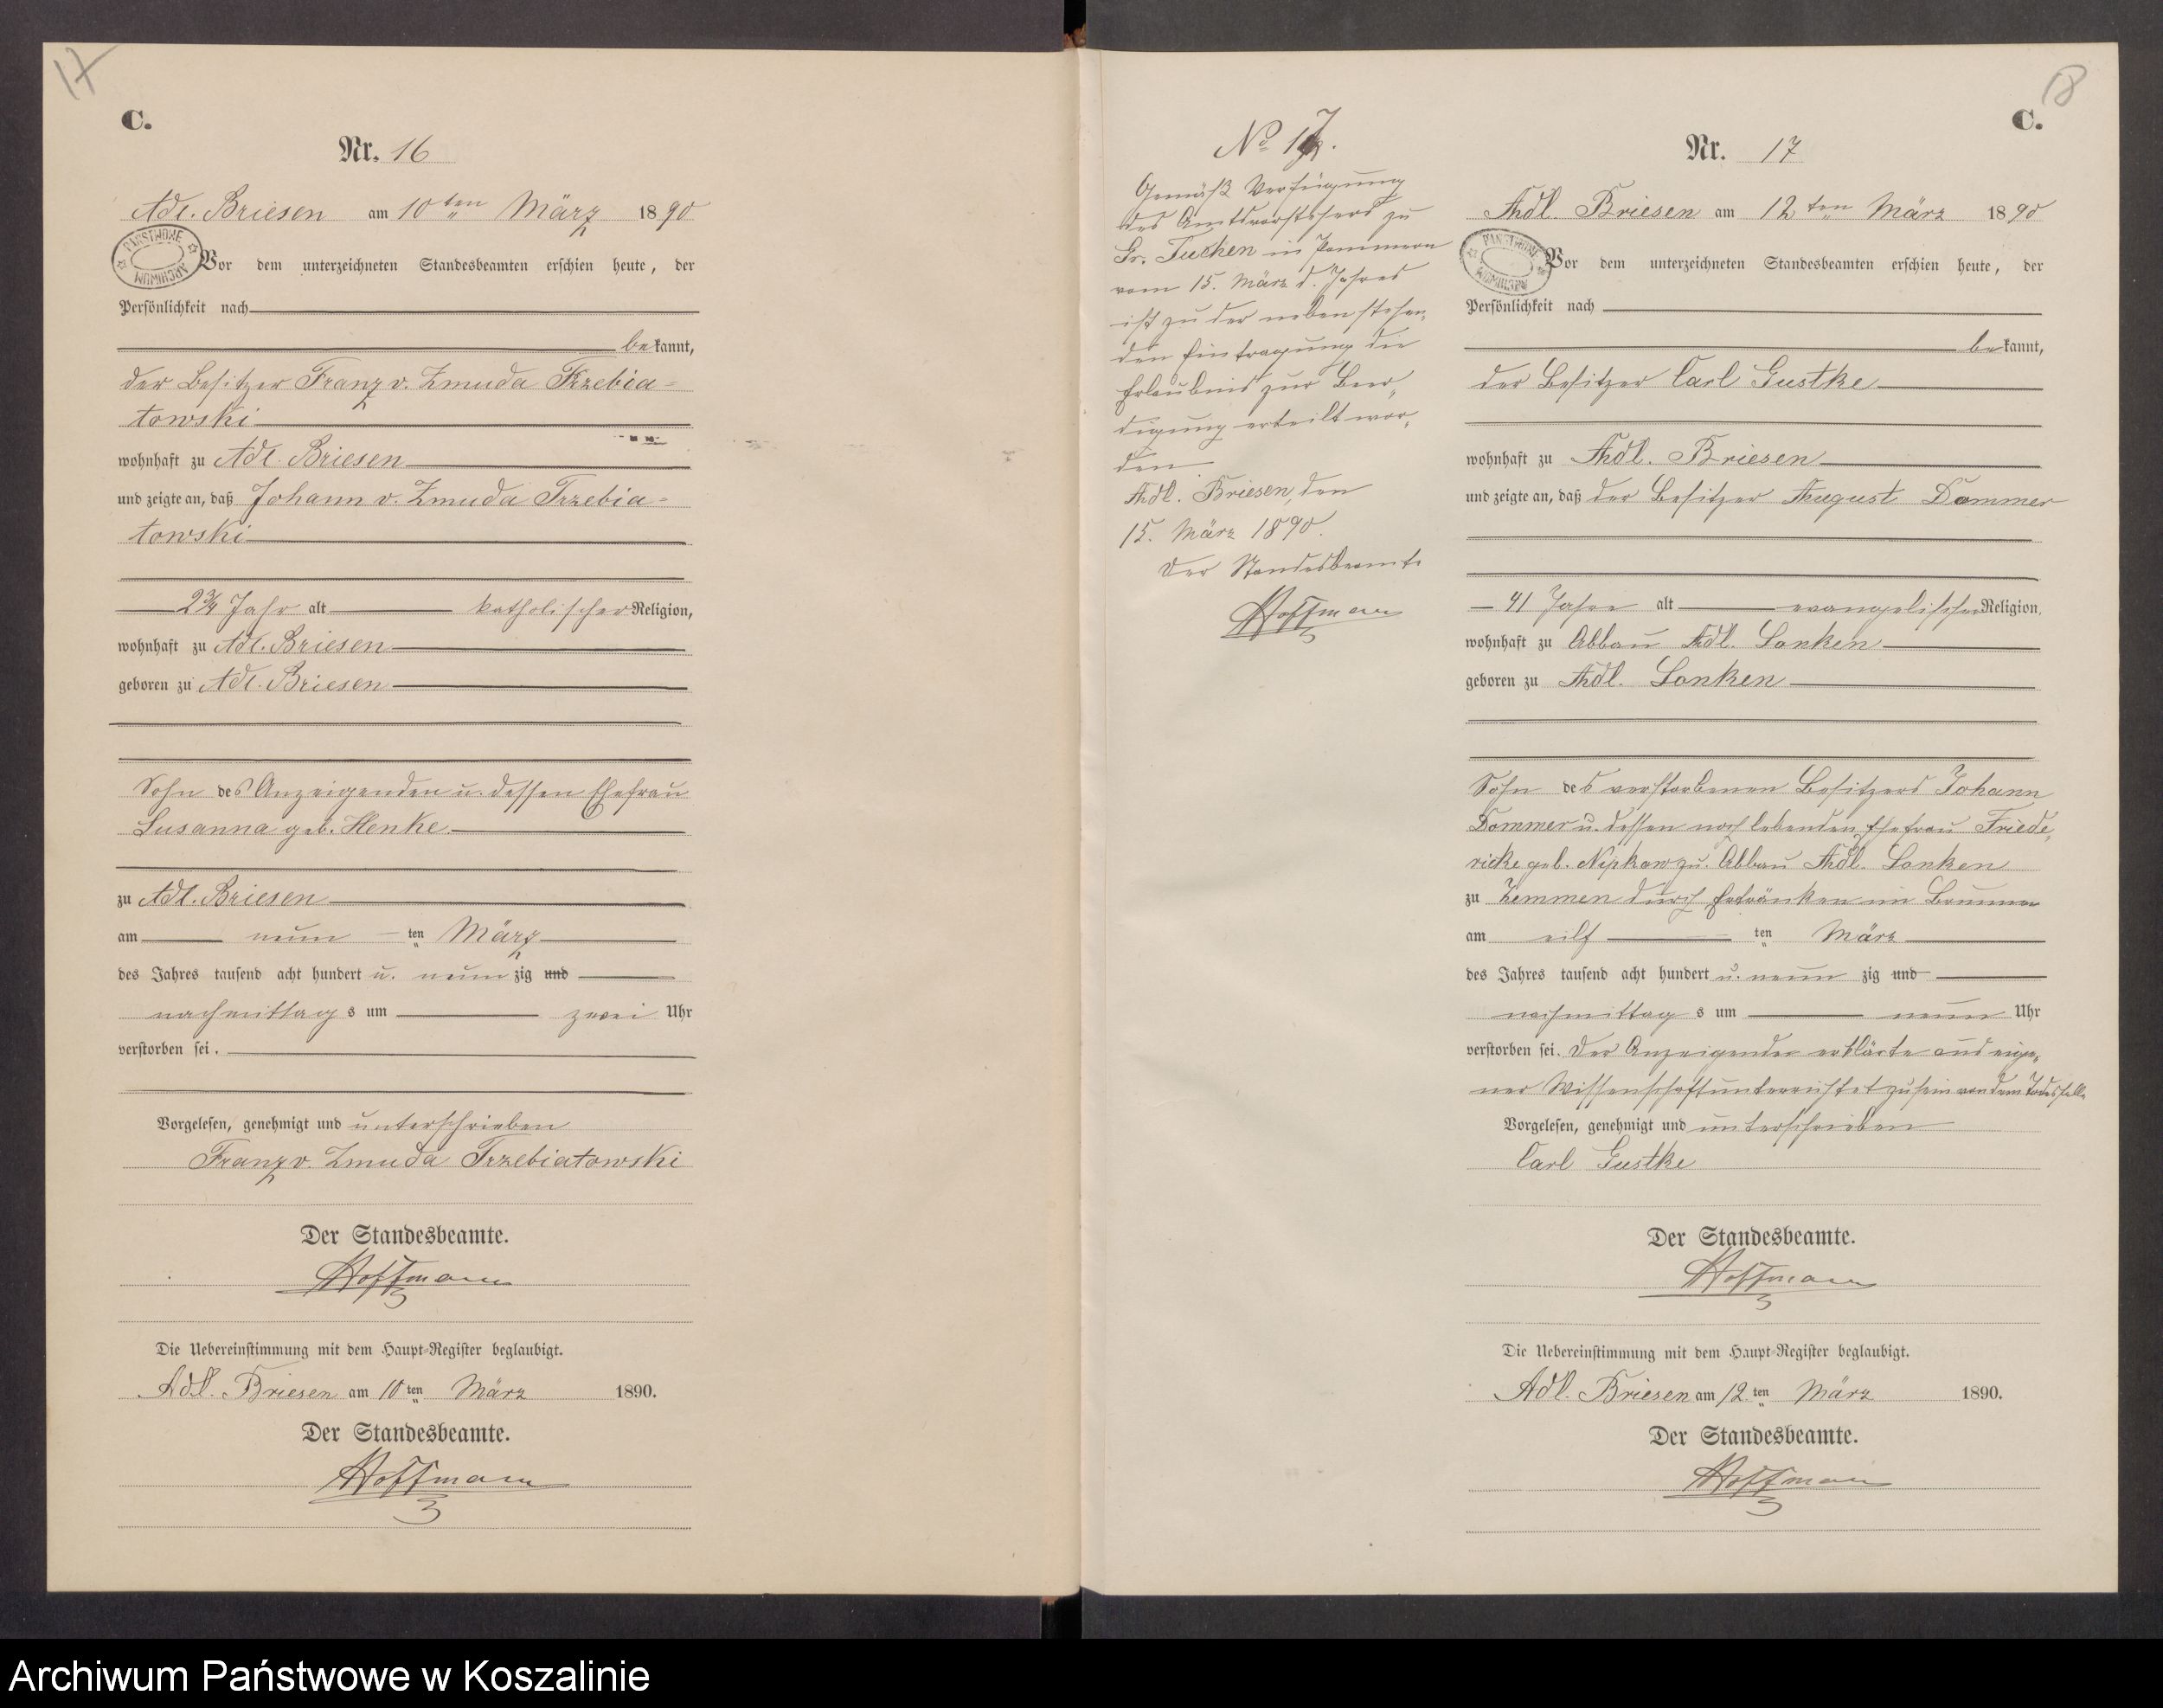 17
C.
Nr. 16
Adl. Briesen am 10ten März 1890
PAŃSTWOWE ARCHIWUM
Vor dem unterzeichneten Standesbeamten erschien heute, der
Persönlichkeit nach
bekannt,
der Besitzer Franz v. Zmuda Trzebia=
towski
wohnhaft zu Adl. Briesen
und zeigte an, daß Johann v. Zmuda Trzebia=
towski
2¾ Jahr alt katholischer Religion,
wohnhaft zu Adl. Briesen
geboren zu Adl. Briesen
Sohn des Anzeigenden u. dessen Ehefrau
Susanna geb. Henke.
zu Adl. Briesen
am neun ten März
des Jahres tausend acht hundert u. neunzig und
nachmittags um zwei Uhr
verstorben sei.
Vorgelesen, genehmigt und unterschrieben
Franz v. Zmuda Trzebiatowski
Der Standesbeamte.
Hoffmann
Die Uebereinstimmung mit dem Haupt-Register beglaubigt.
Adl. Briesen am 10ten März 1890.
Der Standesbeamte.
Hoffmann
18
C.
No 17.
Gemäß Verfügung
des Amtsvorstehers zu
Gr. Tuchen in Pommern
vom 15. März d. Jahres
ist zu der nebenstehen„
den Eintragung die
Erlaubnis zur Beer„
digung erteilt wor„
den
Adl. Briesen, den
15. März 1890.
Der Standesbeamte
Hoffmann
Nr. 17
Adl. Briesen am 12ten März 1890
PAŃSTWOWE ARCHIWUM
Vor dem unterzeichneten Standesbeamten erschien heute, der
Persönlichkeit nach
bekannt,
der Besitzer Carl Gustke
wohnhaft zu Adl. Briesen
und zeigte an, daß der Besitzer August Dommer
41 Jahre alt evangelischer Religion,
wohnhaft zu Abbau Adl. Lonken
geboren zu Adl. Lonken
Sohn des verstorbenen Besitzers Johann
Dommer u. dessen noch lebenden Ehefrau Friede„
ricke geb. Nipkow zu Abbau Adl. Lonken
zu Zemmen durch Ertränken im Brunnen
am eilf ten März
des Jahres tausend acht hundert u. neun zig und
nachmittags um neun Uhr
verstorben sei. Der Anzeigender erklärte aus eige„
ner Wissenschaft unterrichtet zu sein von dem Todesfalle
Vorgelesen, genehmigt und unterschrieben
Carl Gustke
Der Standesbeamte.
Hoffmann
Die Uebereinstimmung mit dem Haupt-Register beglaubigt.
Adl. Briesen am 12.ten März 1890.
Der Standesbeamte.
Hoffmann
Archiwum Państwowe w Koszalinie